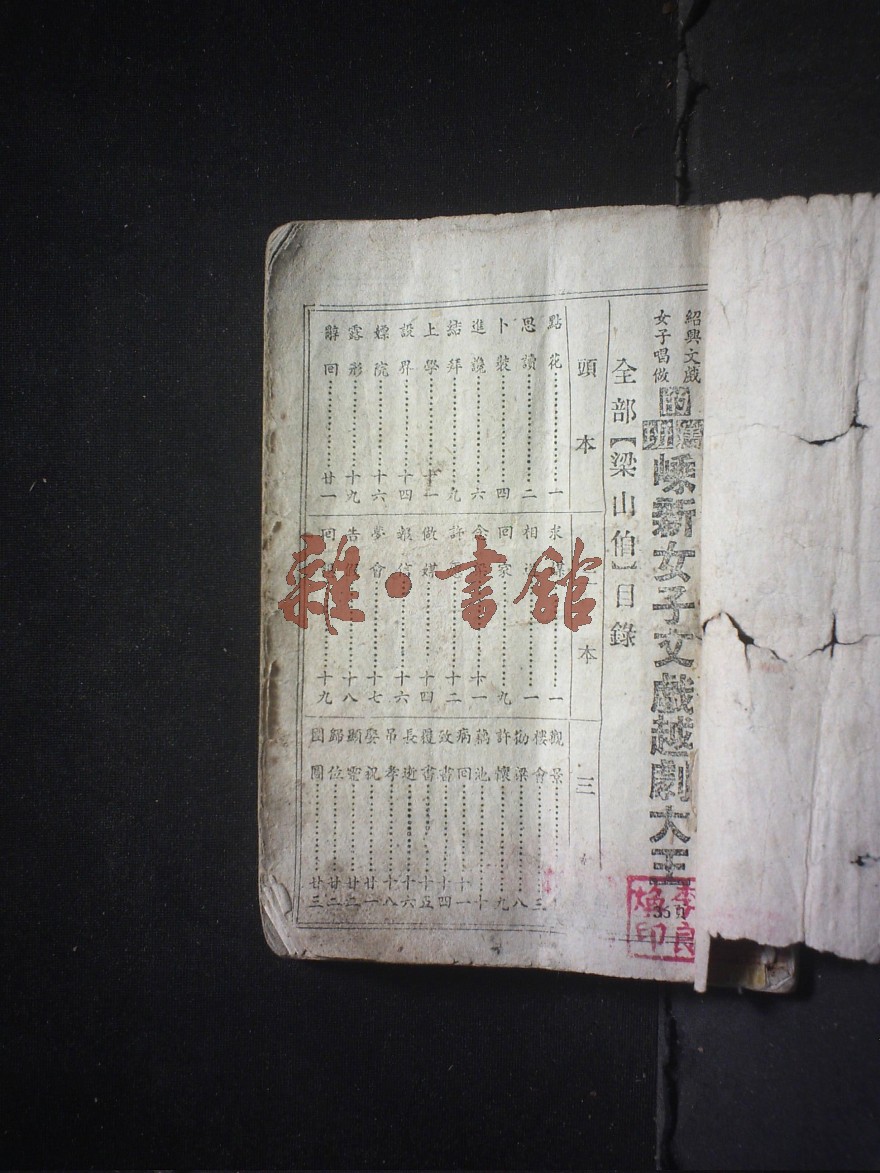 紹興文戲
女子唱做
的篤班
嵊新女子文戲越劇大王
全部【梁山伯】目錄
頭本
點花……一
思讀……二
卜裝……四
進讒……六
結拜……九
上學……十一
設界……十四
嫖院……十六
露形……十九
辭回……廿一
本
求……一
相……一
回家……九
念……十一
許……十二
做媒……十四
報信……十六
夢會……十七
告……十八
回……十九
三
觀景
樓會……三
勸梁……八
許懷……九
藕池……十
病回……十一
致書……十四
復書……十五
長逝……十六
吊孝……十八
娶祝……廿一
顯靈……廿二
歸位……廿二
團圓……廿三
李良煥印
雜·書館